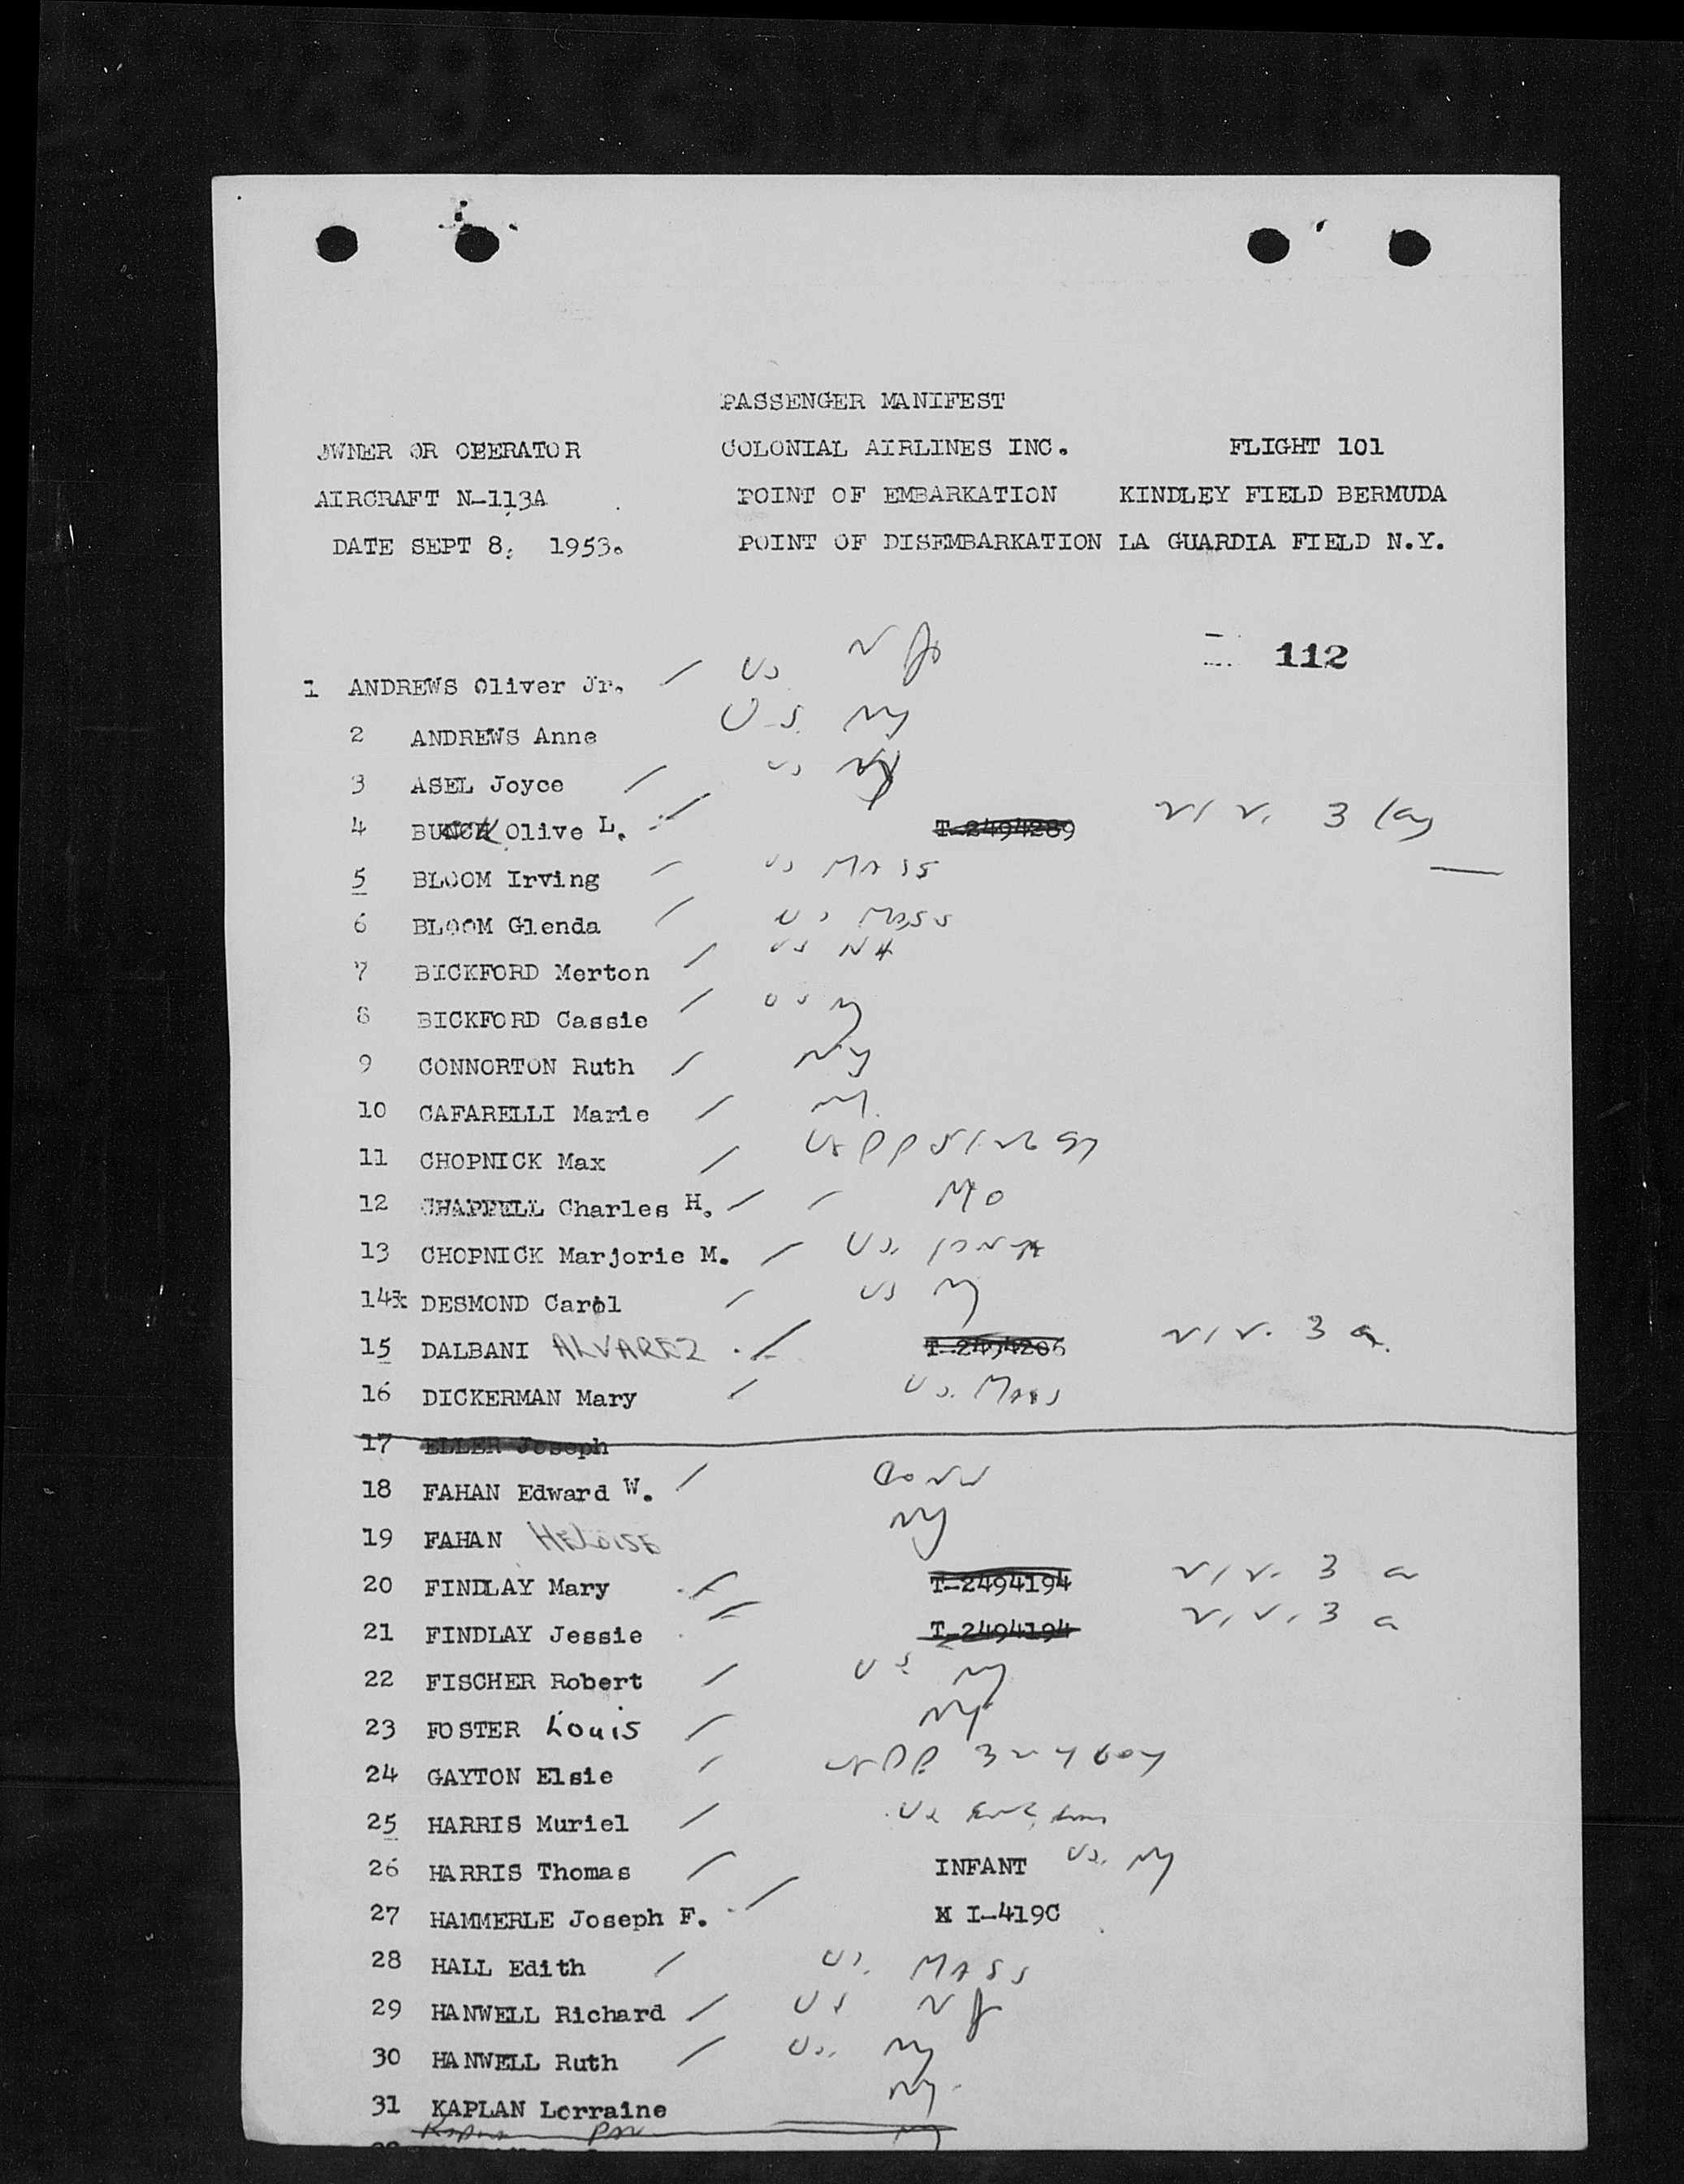 PASSENGER MANIFEST
OWNER OR OBERATOR COLONIAL AIRLINES INC. FLIGHT 101
AIRCRAFT N-113A POINT OF EMBARKATION KINDLEY FIELD BERMUDA
DATE SEPT 8, 1953. POINT OF DISEMBARKATION LA GUARDIA FIELD N.Y.
112
1 ANDREWS Oliver Jr. / US NJ
2 ANDREWS Anne U.S. NY
3 ASEL Joyce / US NY
4 Olive L. / T-2494289 3 (a)
5 BLOOM Irving / US MASS
6 BLOOM Glenda / US Mass
7 BICKFORD Merton / US NH
8 BICKFORD Cassie / US NY
9 CONNORTON Ruth / NY
10 CAFARELLI Marie / NY
11 CHOPNICK Max / US PP
12 CHAPPELL Charles H. / / MO
13 CHOPNICK Marjorie M. / US.
14x DESMOND Carol / US NY
15 DALBANI ALVAREZ / T-2494206 3 a.
16 DICKERMAN Mary / US. Mass
17 ELLER Joseph
18 FAHAN Edward W. / Conn
19 FAHAN HELOISE NY
20 FINDLAY Mary / T-2494194 3 a
21 FINDLAY Jessie T-2494194 3 a
22 FISCHER Robert / US NY
23 FOSTER Louis / NY
24 GAYTON Elsie / PP
25 HARRIS Muriel / US
26 HARRIS Thomas / INFANT US. NY
27 HAMMERLE Joseph F. / X I-419C
28 HALL Edith / US. MASS
29 HANWELL Richard / US NJ
30 HANWELL Ruth / US. NY
31 KAPLAN Lorraine NY